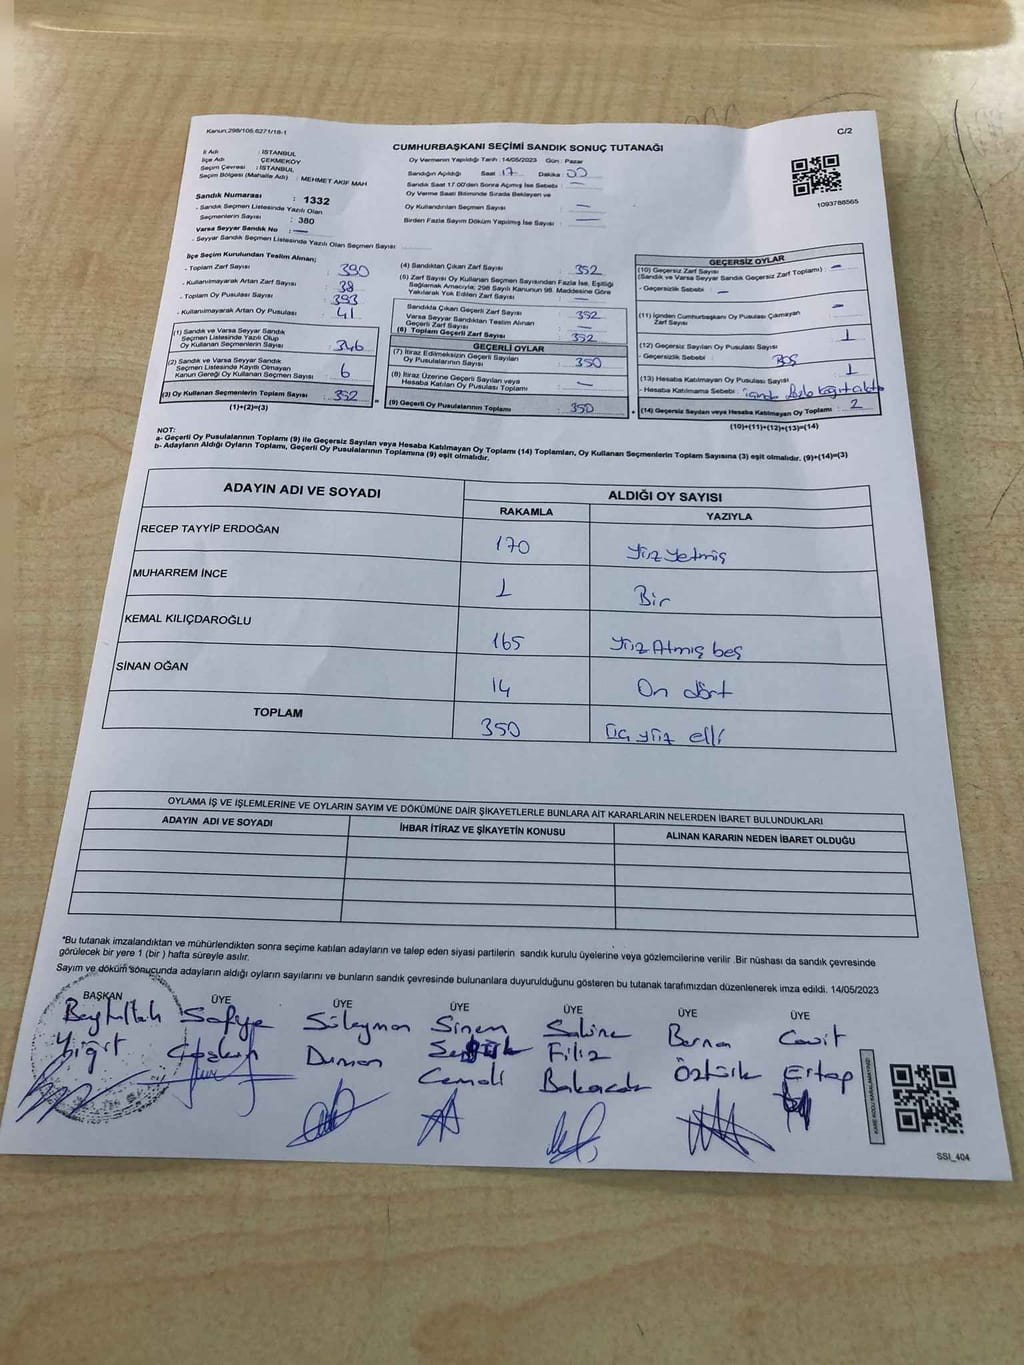 Kanun:298/105,6271/18-1
C/2
CUMHURBAŞKANI SEÇİMİ SANDIK SONUÇ TUTANAĞI
İl Adı : İSTANBUL
İlçe Adı : ÇEKMEKÖY
Seçim Çevresi : İSTANBUL
Seçim Bölgesi (Mahalle Adı) : MEHMET AKİF MAH
Sandık Numarası : 1332
- Sandık Seçmen Listesinde Yazılı Olan
Seçmenlerin Sayısı : 380
Varsa Seyyar Sandık No : —
- Seyyar Sandık Seçmen Listesinde Yazılı Olan Seçmen Sayısı
Oy Vermenin Yapıldığı Tarih : 14/05/2023 Gün : Pazar
Sandığın Açıldığı Saat 17 Dakika 00
Sandık Saat 17.00'den Sonra Açımış İse Sebebi : —
Oy Verme Saati Bitiminde Sırada Bekleyen ve
Oy Kullandırılan Seçmen Sayısı : —
Birden Fazla Sayım Döküm Yapılmış İse Sayısı : —
1093788565
İlçe Seçim Kurulundan Teslim Alınan;
- Toplam Zarf Sayısı : 390
- Kullanılmayarak Artan Zarf Sayısı : 38
- Toplam Oy Pusulası Sayısı : 393
- Kullanılmayarak Artan Oy Pusulası : 41
(1) Sandık ve Varsa Seyyar Sandık
Seçmen Listesinde Yazılı Olup
Oy Kullanan Seçmenlerin Sayısı : 346
(2) Sandık ve Varsa Seyyar Sandık
Seçmen Listesinde Kayıtlı Olmayan
Kanun Gereği Oy Kullanan Seçmen Sayısı : 6
(3) Oy Kullanan Seçmenlerin Toplam Sayısı : 352
(1)+(2)=(3)
(4) Sandıktan Çıkan Zarf Sayısı : 352
(5) Zarf Sayısı Oy Kullanan Seçmen Sayısından Fazla İse, Eşitliği
Sağlamak Amacıyla; 298 Sayılı Kanunun 98. Maddesine Göre
Yakılarak Yok Edilen Zarf Sayısı : —
Sandıkta Çıkan Geçerli Zarf Sayısı : 352
Varsa Seyyar Sandıktan Teslim Alınan
Geçerli Zarf Sayısı : —
(6) Toplam Geçerli Zarf Sayısı : 352
GEÇERLİ OYLAR
(7) İtiraz Edilmeksizin Geçerli Sayılan
Oy Pusulasının Sayısı : 350
(8) İtiraz Üzerine Geçerli Sayılan veya
Hesaba Katılan Oy Pusulası Toplamı : —
(9) Geçerli Oy Pusulalarının Toplamı : 350
GEÇERSİZ OYLAR
(10) Geçersiz Zarf Sayısı
(Sandık ve Varsa Seyyar Sandık Geçersiz Zarf Toplamı) : —
- Geçersizlik Sebebi : —
(11) İçinden Cumhurbaşkanı Oy Pusulası Çıkmayan
Zarf Sayısı : —
(12) Geçersiz Sayılan Oy Pusulası Sayısı : 1
- Geçersizlik Sebebi : BOŞ
(13) Hesaba Katılmayan Oy Pusulası Sayısı : 1
- Hesaba Katılmama Sebebi : içinde fazla kağıt
(14) Geçersiz Sayılan veya Hesaba Katılmayan Oy Toplamı : 2
(10)+(11)+(12)+(13)=(14)
NOT:
a- Geçerli Oy Pusulalarının Toplamı (9) ile Geçersiz Sayılan veya Hesaba Katılmayan Oy Toplamı (14) Toplamları, Oy Kullanan Seçmenlerin Toplam Sayısına (3) eşit olmalıdır. (9)+(14)=(3)
b- Adayların Aldığı Oyların Toplamı, Geçerli Oy Pusulalarının Toplamına (9) eşit olmalıdır.
ADAYIN ADI VE SOYADI ALDIĞI OY SAYISI
RAKAMLA YAZIYLA
RECEP TAYYİP ERDOĞAN 170 Yüz Yetmiş
MUHARREM İNCE 1 Bir
KEMAL KILIÇDAROĞLU 165 Yüz Atmış beş
SİNAN OĞAN 14 On dört
TOPLAM 350 Üç yüz elli
OYLAMA İŞ VE İŞLEMLERİNE VE OYLARIN SAYIM VE DÖKÜMÜNE DAİR ŞİKAYETLERLE BUNLARA AİT KARARLARIN NELERDEN İBARET BULUNDUKLARI
ADAYIN ADI VE SOYADI İHBAR İTİRAZ VE ŞİKAYETİN KONUSU ALINAN KARARIN NEDEN İBARET OLDUĞU
*Bu tutanak imzalandıktan ve mühürlendikten sonra seçime katılan adayların ve talep eden siyasi partilerin sandık kurulu üyelerine veya gözlemcilerine verilir .Bir nüshası da sandık çevresinde
görülecek bir yere 1 (bir ) hafta süreyle asılır.
Sayım ve döküm sonucunda adayların aldığı oyların sayılarını ve bunların sandık çevresinde bulunanlara duyurulduğunu gösteren bu tutanak tarafımızdan düzenlenerek imza edildi. 14/05/2023
BAŞKAN ÜYE ÜYE ÜYE ÜYE ÜYE ÜYE
Beytullah Safiye Süleyman Sinem Sabine Bernan Cavit
Yiğit Duman Filiz Öztürk Ertap
Cemali
SSI_404